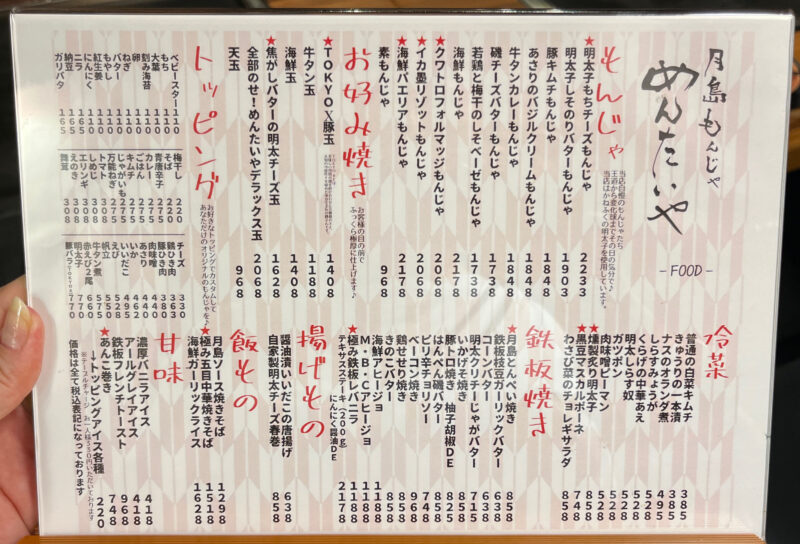 月島もんじゃ
めんたいや
-FOOD-
もんじゃ
当店自慢のもんじゃたち
王道から変化球までその日の気分で♪
当店はかねふくの明太子を使用しています。
★明太子もちチーズもんじゃ 2233
明太子しそのりバターもんじゃ 1903
豚キムチもんじゃ 1848
あさりのバジルクリームもんじゃ 1848
牛タンカレーもんじゃ 1848
磯チーズバターもんじゃ 1738
若鶏と梅干のしそベーゼもんじゃ 1738
海鮮もんじゃ 2178
★クワトロフォルマッジもんじゃ 2068
★イカ墨リゾットもんじゃ 2068
★海鮮パエリアもんじゃ 2178
素もんじゃ 968
お好み焼き
お客様の目の前で
ふっくら極厚に仕上げます♪
★TOKYO X豚玉 1408
牛タン玉 1188
海鮮玉 1408
★焦がしバターの明太チーズ玉 1628
全部のせ！めんたいやデラックス玉 2068
天玉 968
トッピング
お好きなトッピングでカスタムして
あなただけのオリジナルのもんじゃを♪
ベビースター 110
もち
大葉
刻み海苔
卵
ねぎ
バター
もやし
紅生姜
にんにく
ニラ
納豆
ガリバタ 165
梅干し 220
そば
青唐辛子 275
カレー 275
ごはん 275
キムチ 275
じゃがいも 275
万能ねぎ 275
トマト 308
しめじ 308
エリンギ 308
えのき 308
舞茸 308
チーズ 330
鶏ひき肉 363
豚ひき肉
肉味噌 440
あさり 440
いか 462
いいだこ 495
えび 528
帆立
牛タン煮
赤えび2尾 660
明太子 770
豚バラ TOKYOX 770
冷菜
普通の白菜キムチ 385
きゅうりの一本漬 385
ナスのオランダ煮
しらすみょうが 495
くらげの中華あえ 528
明太しらす奴 528
ガツポン酢 528
肉味噌ピーマン 528
★燻製炙り明太子 858
黒豆マスカルポーネ 748
わさび菜のチョレギサラダ 858
鉄板焼き
★月島とんぺい焼き 858
鉄板枝豆ガーリックバター 638
コーンバター 638
明太クリチーじゃがバター 715
いかげそ焼き 858
豚トロ焼き 柚子胡椒DE 825
はんぺん磯バター 858
ピリ辛チョリソー 748
ベーコン焼き 968
鶏せせり焼き 858
きのこバター 858
海鮮アヒージョ 1188
M・B・Cアヒージョ 1188
★極み鉄板レバニラ 1188
テキサスステーキ（200g）にんにく醤油DE 2178
揚げもの
醤油漬いいだこの唐揚げ 638
自家製明太チーズ春巻 858
飯もの
月島ソース焼きそば 1298
★極み五目中華焼きそば 1518
海鮮ガーリックライス 1628
甘味
濃厚バニラアイス 418
アールグレイアイス 418
鉄板フレンチトースト 968
★あんこ巻き 748
→トッピングアイス各種 220
※テーブルチャージ お一人様330円いただいております
価格は全て税込表記になっております